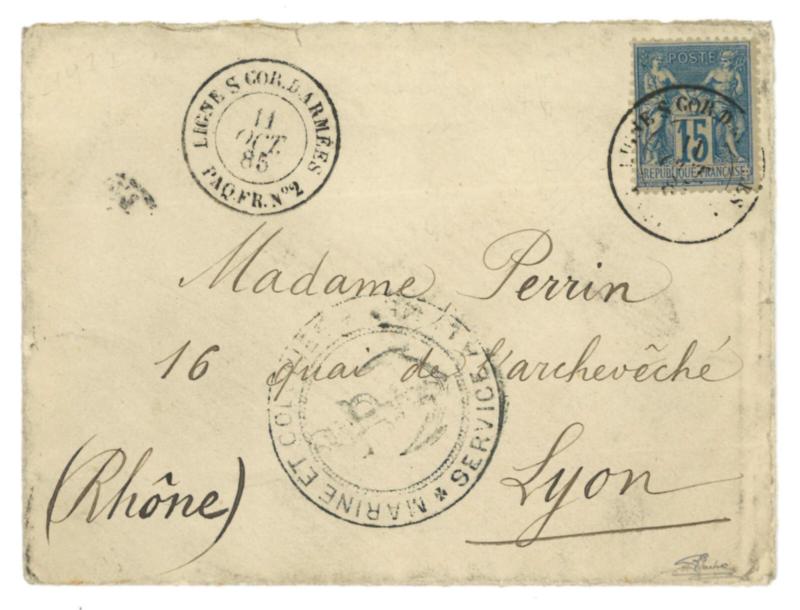 LIGNE S COR. D'ARMÉES
11
OCT
85
PAQ. FR. Nº 2
POSTE
15
REPUBLIQUE FRANÇAISE
LIGNE S COR. D'A
Madame Perrin
16 quai de l'archevêché
Lyon
(Rhône)
MARINE ET COL
SERVICE A